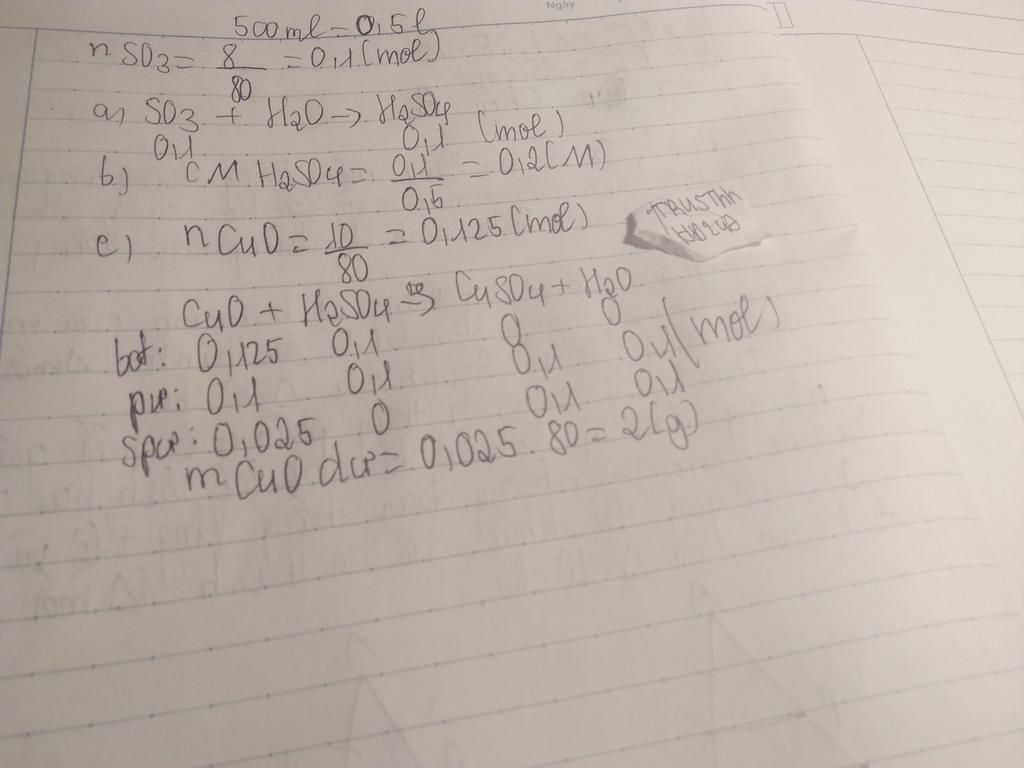 Ngày
500ml = 0,5l
nSO3 = 8/80 = 0,1 (mol)
a, SO3 + H2O → H2SO4
0,1 0,1 (mol)
b) CM H2SO4 = 0,1/0,5 = 0,2 (M)
c) nCuO = 10/80 = 0,125 (mol)
CuO + H2SO4 → CuSO4 + H2O
bđ: 0,125 0,1 0 0
pư: 0,1 0,1 0,1 0,1 (mol)
spư: 0,025 0 0,1 0,1
mCuO dư = 0,025 . 80 = 2 (g)